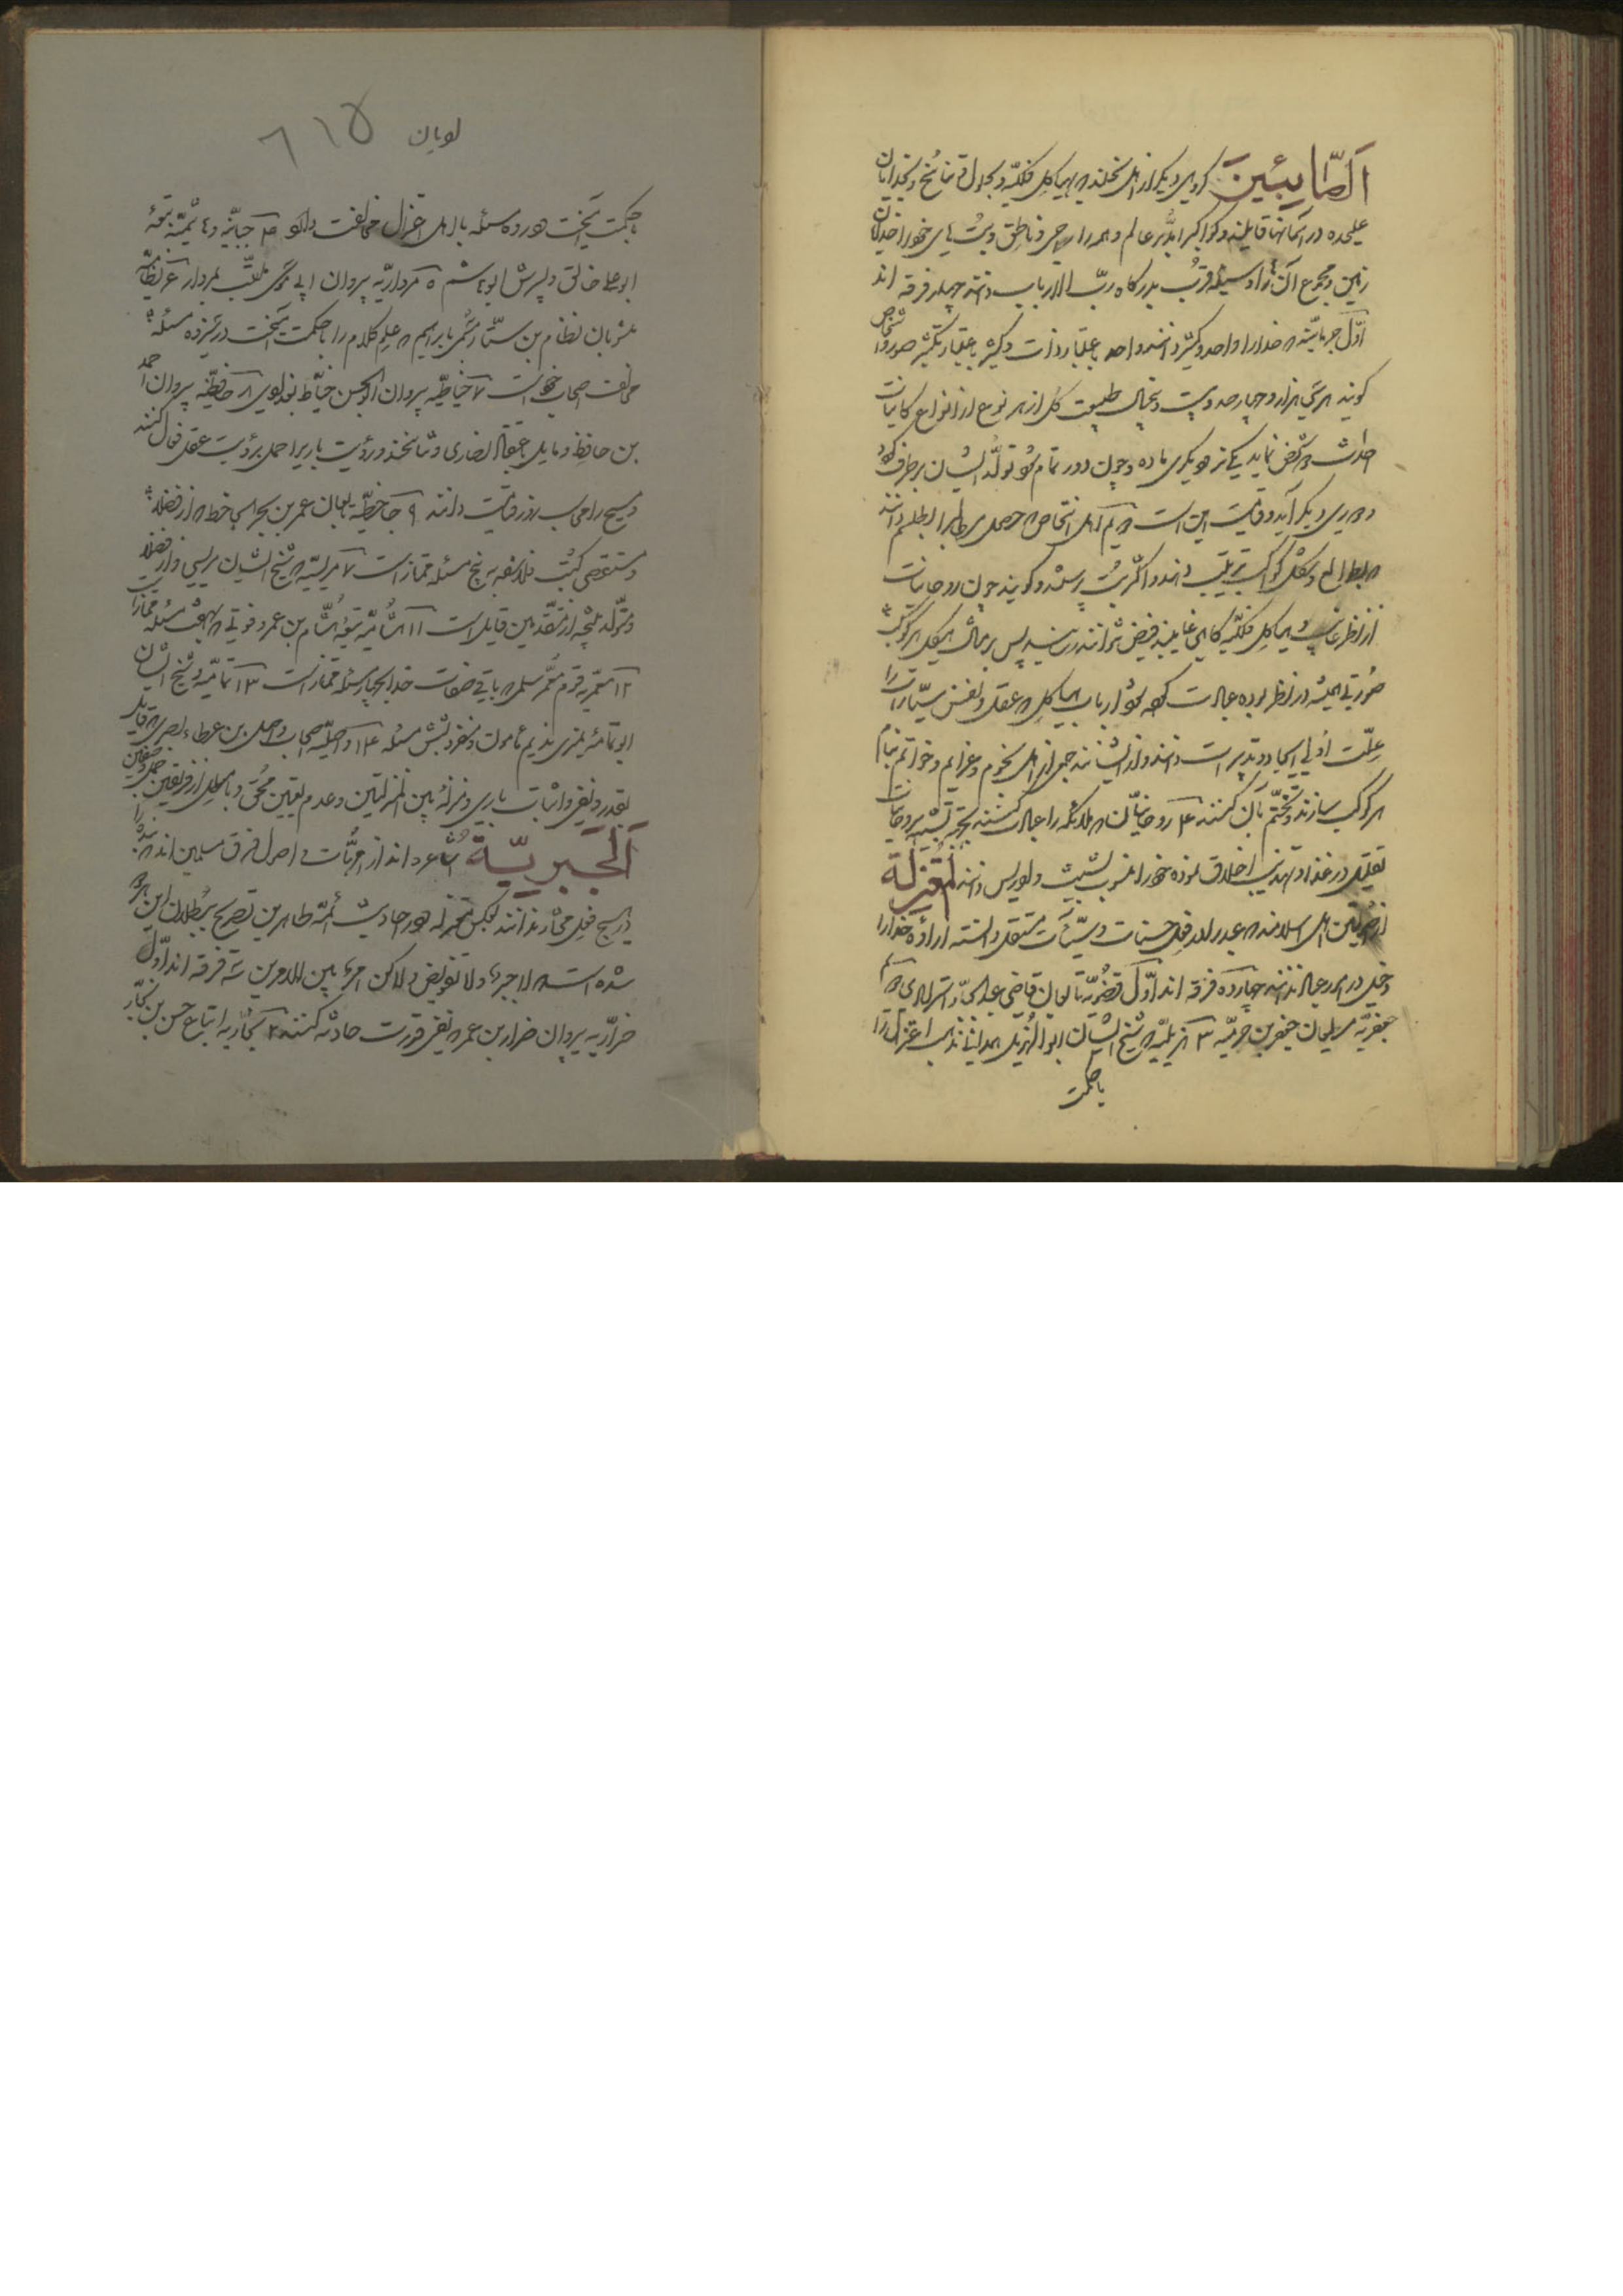 اَلصَّابِئِینَ کروهی دیکر از اهل نحلند که بهیاکل فلکیّه و بحلول و تناسخ و بخدایان
علیحده در آسمانها قایلند و کواکب را مدبّر عالم و همه را حی و ناطق و بت های خود را خدایان
زمین و مجموع آن را وسیلهٔ قرب بدرکاه ربّ الارباب دانند چهار فرقه اند
اوّل جربانیّه که خدا را واحد و کثیر دانند واحد باعتبار ذات و کثیر باعتبار تکثیر صور و اشخاص
کویند هر سی هزار و چهار صد و بیست و پنج سال طبیعت کل از هر نوع از انواع کاینات
احداث دو شخص نماید یکی نر و دیکری ماده و چون دور تمام شود تولّد ایشان بر طرف کردد
و دوری دیکر آید و قیامت این است دویم اهل اشخاص که حصول مطالب را بطلسم دانند
که بطالع و شکل کواکب ترتیب دهند و اکثر بت پرستند و کویند چون روحانیات
از نظر غایب و هیاکل فلکیّه کاهی غایبند فیض نتوانند رسانید پس بر مثال هیکل هر کوکب
صورتی همیشه در نظر بوده عبادت کرده شود ارباب هیاکل که عقل و نفس سیّارات را
علّت اولی ایجاد و تدبیر است دانند و از ایشانند جمعی از اهل نجوم و عزایم و خواتم بنام
هر کوکب سازند و تختّم بآن کنند ۴ روحانیّان که ملائکه را عبادت کنند بجهة تشبیه بروحانیات
تقلیل در غذا و تهذیب اخلاق نموده خود را منسوب بشیث و ادریس دانند المُعتزلة
از فریقین اهل اسلامند که عبد را در فعل حسنات و سیّئات مستقل دانسته ارادهٔ خدا را
دخیل در امور عباد ندانند چهارده فرقه اند اوّل قضویّه تابعان قاضی عبد الجبّار استرابادی دویم
جعفریّه مریدان جعفر بن حرب ۳ هزیلیّه که شیخ ایشان ابو الهزیل همدانیانند مذهب اعتزال را
با حکمت
لوبان ۶۱۵
بحکمت آمیخت در ده مسئله با اهل اعتزال مخالفت دارد ۳ جبائیّه و ۴ بهشمیّه تبعهٔ
ابو علی خالق و پسرش ابو هاشم ۵ مرداریّه پیروان ابی موسی ملقّب بمردار ۶ نظامیّه
مشربان نظام بن سیّار مسمّی بابراهیم که علم کلام را با حکمت آمیخت در سیزده مسئله
مخالفت اصحاب خود است ۷ خیاطیّه پیروان ابو الحسن خیّاط بغدادی ۸ حافظیّه پیروان احمد
بن حافظ و مایل بمقال نصاری و تناسخند و رؤیت باری را حمل برؤیت عقل فعال کنند
و مسیح را محاسب روز قیامت دانند ۹ جاحظیّه تابعان عمر بن بحر ابی جاحظ که از فضلا
و مستقصی کتب فلاسفه به پنج مسئله ممتاز است مریسیّه که شیخ ایشان مریسی و از فضلا
متولّد بلنجه از متقدّمین قایل است ۱۱ هشامیّه تبعهٔ هشام بن عمرو فوتی که بهفت مسئله ممتاز است
۱۲ معمّریه قوم معمّر سلمی که باقی صفات خدا بچهار مسئله ممتاز است ۱۳ ثمامیّه و شیخ ایشان
ابو ثمامهٔ نمیری ندیم مأمون و منفرد بشش مسئله ۱۴ واصلیّه اصحاب واصل بن عطاء بصری که قایل
بقدر و نفی و اثبات باری و منزلهٔ بین المنزلتین و عدم تعیین محق و باطل از فریقین جمل و صفین
اَلجَبریّة اشاعره اند از امّهات و اصول فرق مسلمین اند که بنده را
در هیچ فعل مختار ندانند بعکس معتزله و در احادیث ائمّهٔ طاهرین تصریح ببطلان این هر دو
شده است که لا جبر و لا تفویض و لاکن امر بین الامرین سه فرقه اند اوّل
ضراریّه پیروان ضرار بن عمر که نفی قدرت حادثه کنند ۲ نجّاریه اتباع حسن بن نجّار